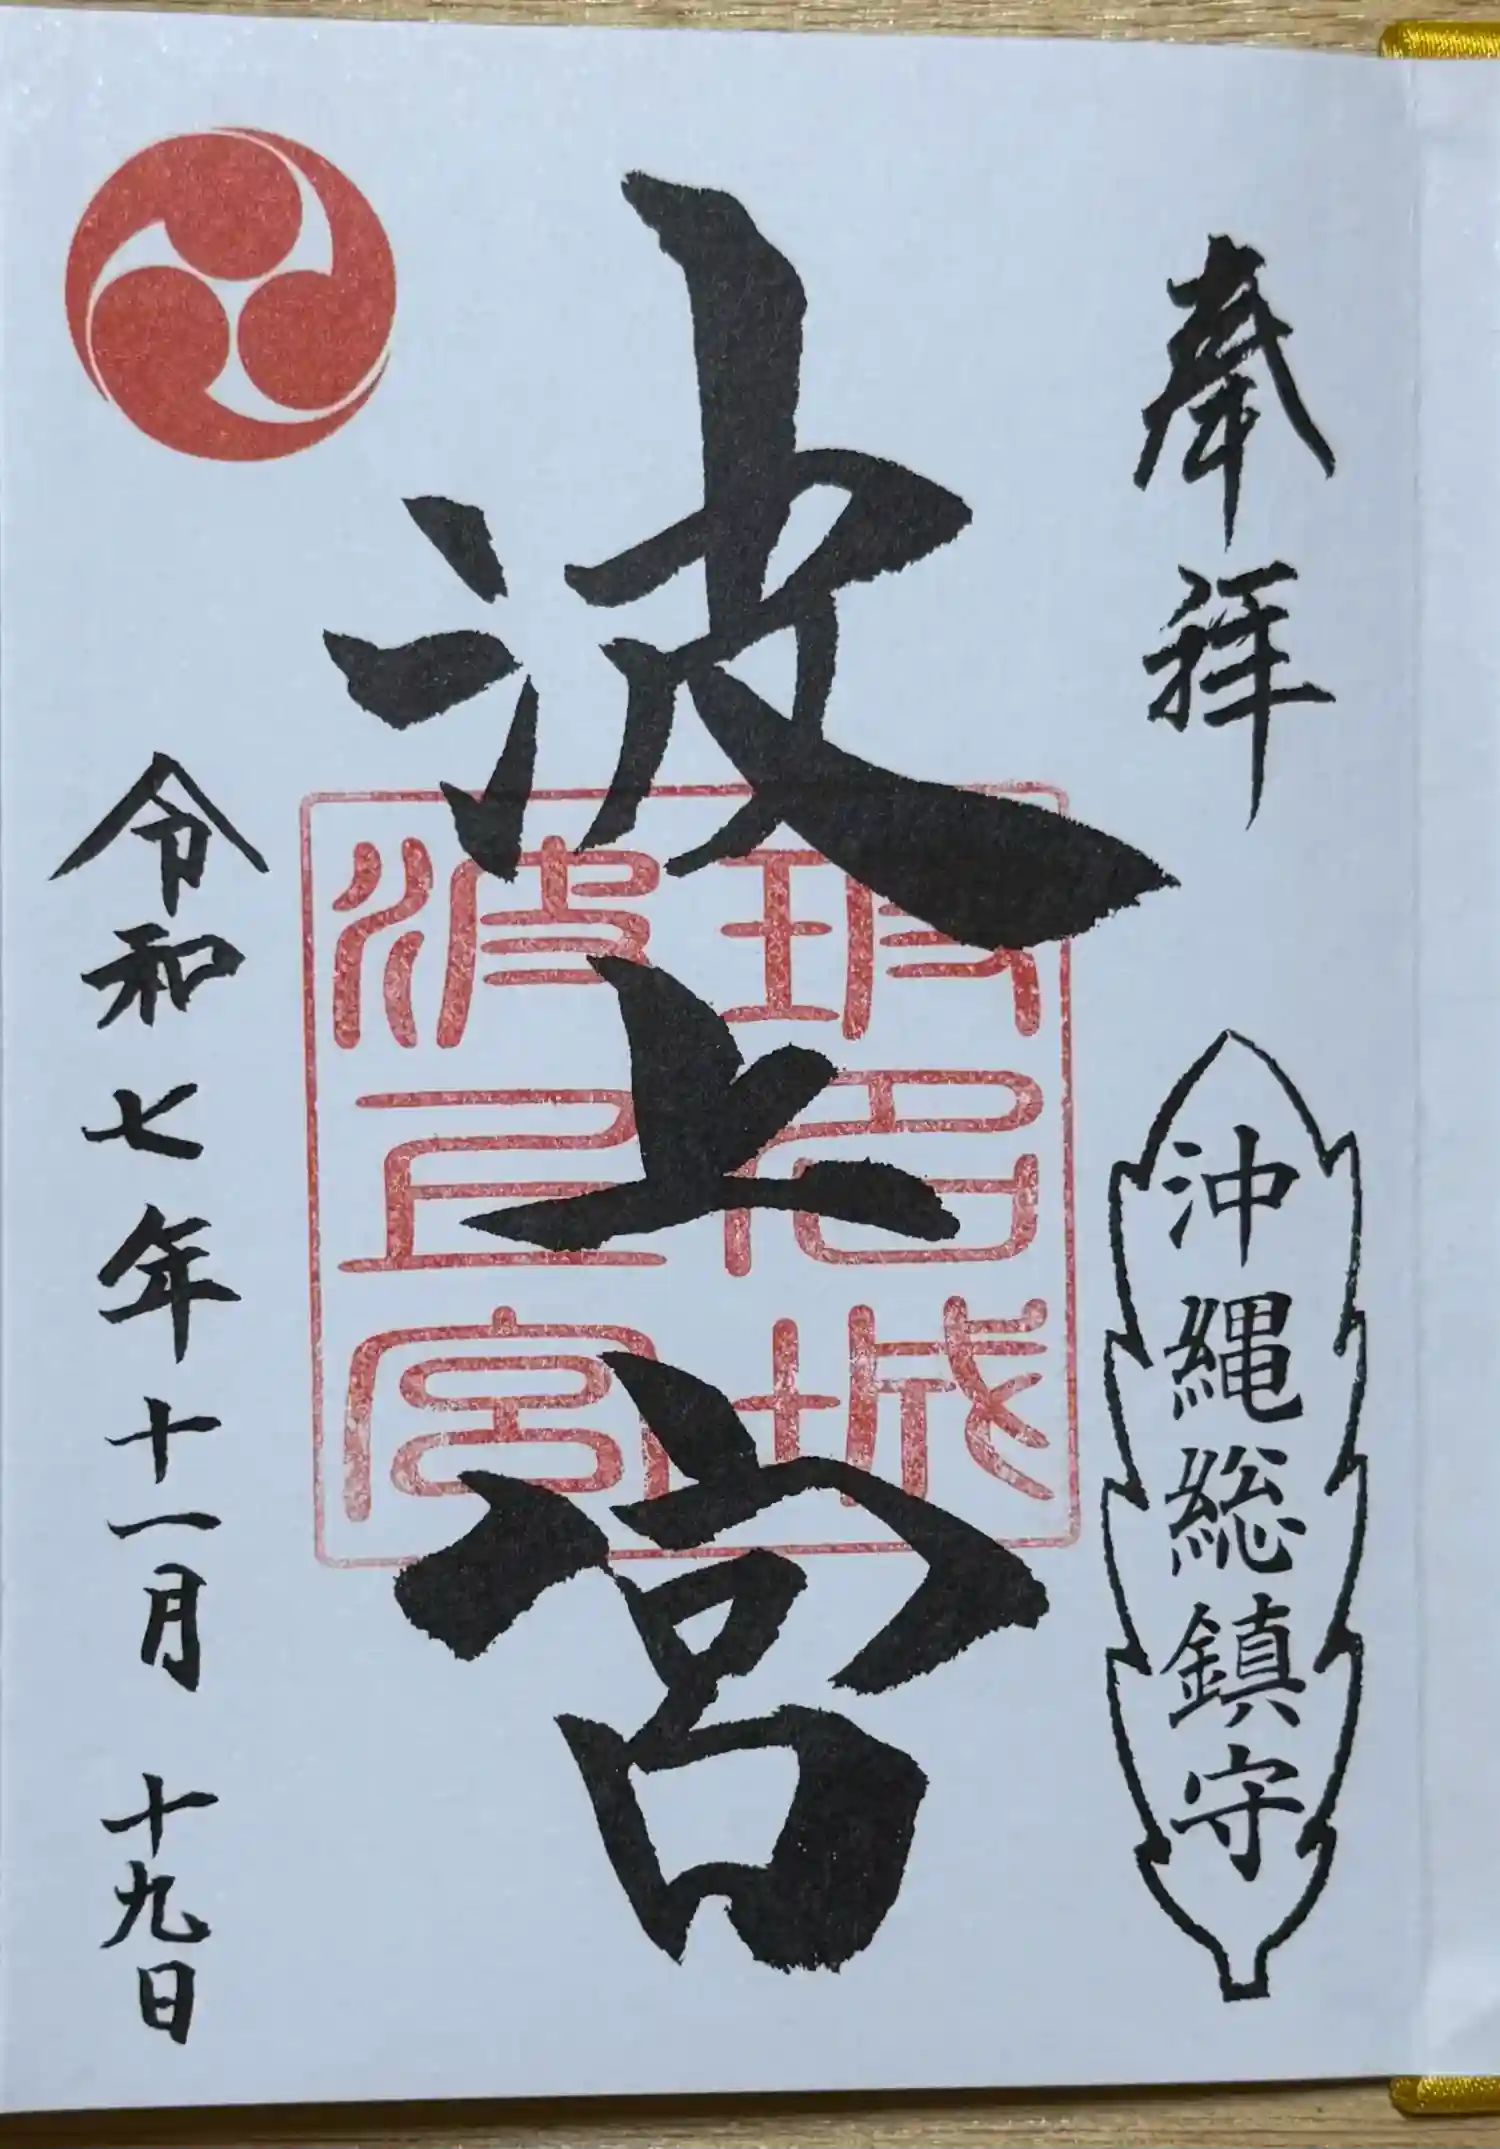 奉拝
沖縄総鎮守
波上宮
琅名城
波上宮
令和七年十一月 十九日